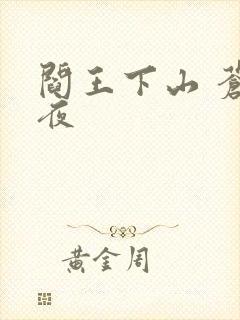 閻王下山 蒼
夜
黃金周